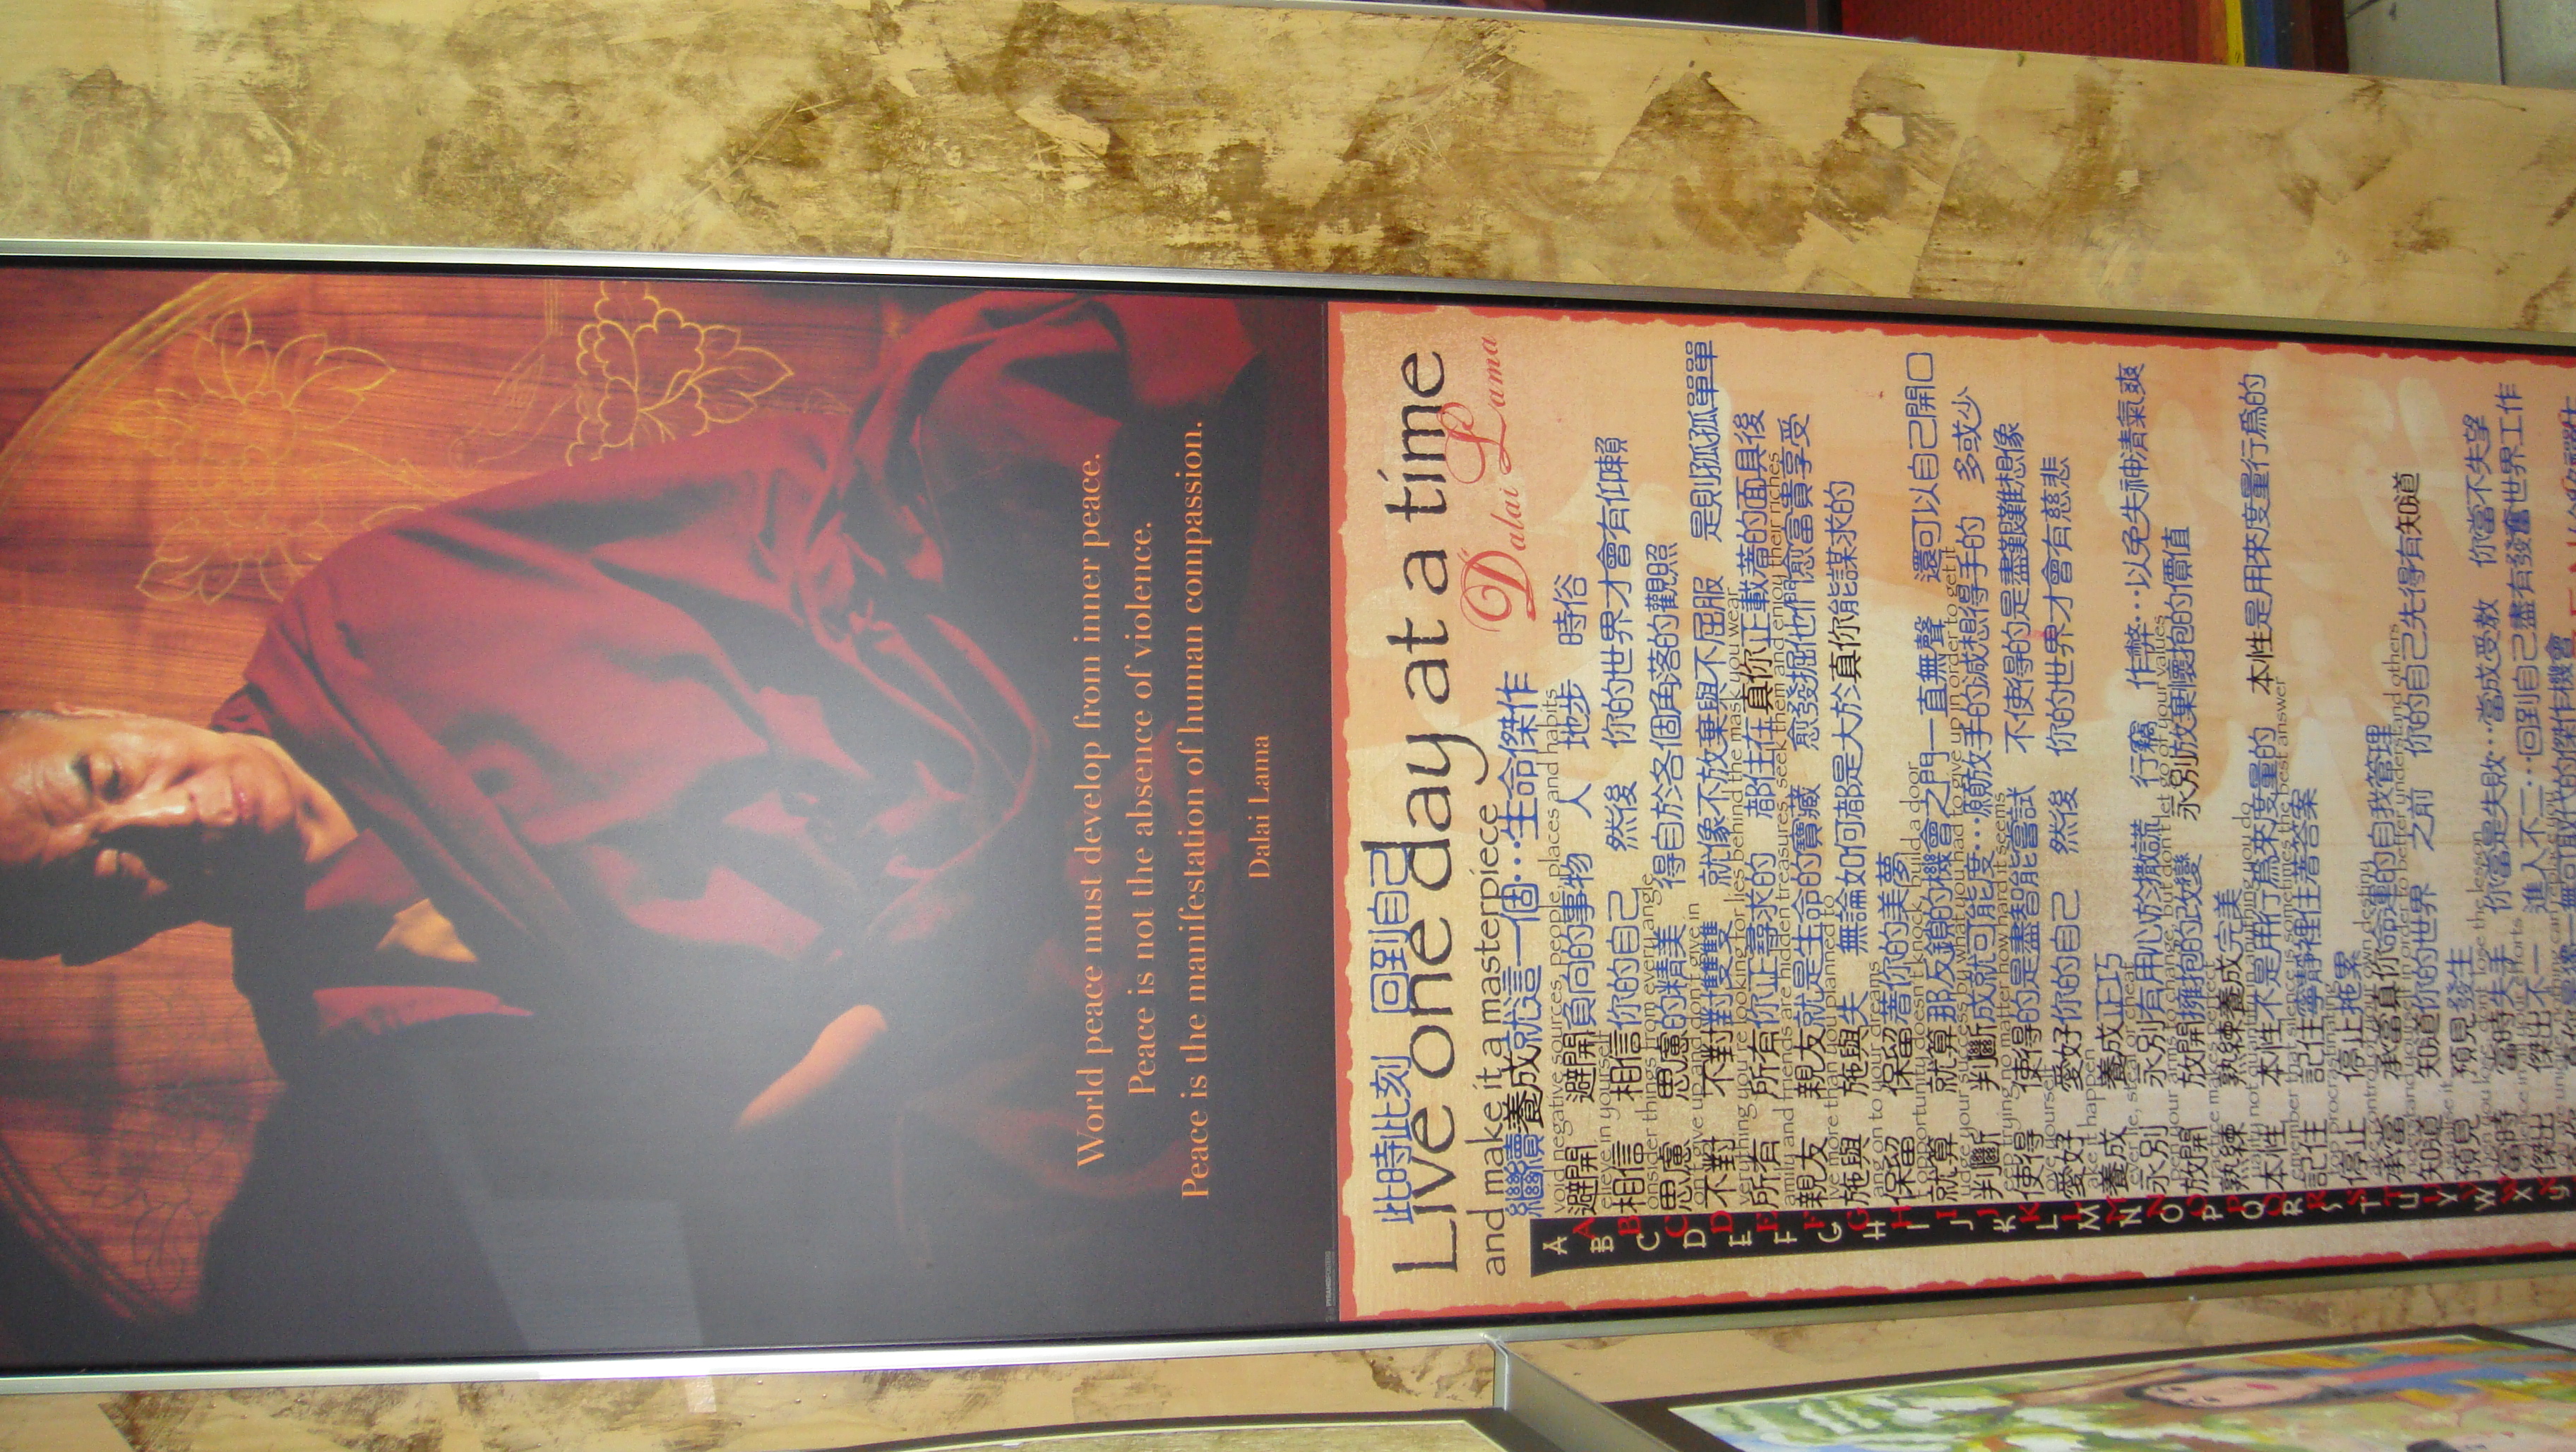 World peace must develop from inner peace.
Peace is not the absence of violence.
Peace is the manifestation of human compassion.
Dalai Lana
此時此刻 回到自己
Live one day at a time
and make it a masterpiece
Dalai Lama
繼續養成就這一個…生命傑作
A 避開 避開負向的事物 人 地步 時俗
void negative sources, people, places and habits
B 相信 相信你的自己 然後 你的世界才會有仰賴
elieve in yourself
C 思慮 思慮的精美 得自於各個角落的觀照
onsider things from every angle
D 不對 不對對雙雙 就像不放棄與不屈服 是則孤孤單單
on't give up and don't give in
E 所有 所有你正尋求的 都住在真你正載著的面具後
verything you're looking for lies behind the mask you wear
F 親友 親友就是生命的寶藏 愈發發掘他們愈富貴享受
amily and friends are hidden treasures, seek them and enjoy their riches
G 施與 施與失 無論如何都是大於真你能謀求的
ive more than you planned to
H 保留 保留著你的美夢
ang on to your dreams
I 就算 就算那反鎖的機會之門一直無聲 還可以自己開口
f opportunity doesn't knock, build a door
J 判斷 判斷成就可能度…願放手的減想得手的 多或少
udge your success by what you had to give up in order to get it
K 使得 使得的是盡智能嘗試 不使得的是盡艱難想像
eep trying no matter how hard it seems
L 愛好 愛好你的自己 然後 你的世界才會有慈悲
ove yourself
M 養成 養成正巧
ake it happen
N 永別 永別有用心於撒謊 行竊 作弊…以免失神清氣爽
ever lie, steal or cheat
O 放開 放開擁抱的改變 永別放棄懷抱的價值
pen your arms to change, but don't let go of your values
P 熟練 熟練養成完美
ractice makes perfect
Q 本性 本性不是用行為來度量的 本性是用來度量行為的
R 記住 記住寧靜裡住著答案
emember that silence is sometimes the best answer
S 停止 停止拖累
top procrastinating
T 承當 承當真你命運的自我管理
ake control of your own destiny
U 知道 知道你的世界 之前 你的自己先得有知道
nderstand yourself in order to better understand others
V 預見 預見發生
W 當時 當時失手 你當是失敗…當成受教 你當不失望
hen you lose, don't lose the lesson
X 傑出 傑出不一 進入不二…回到自己盡有發奮世界工作